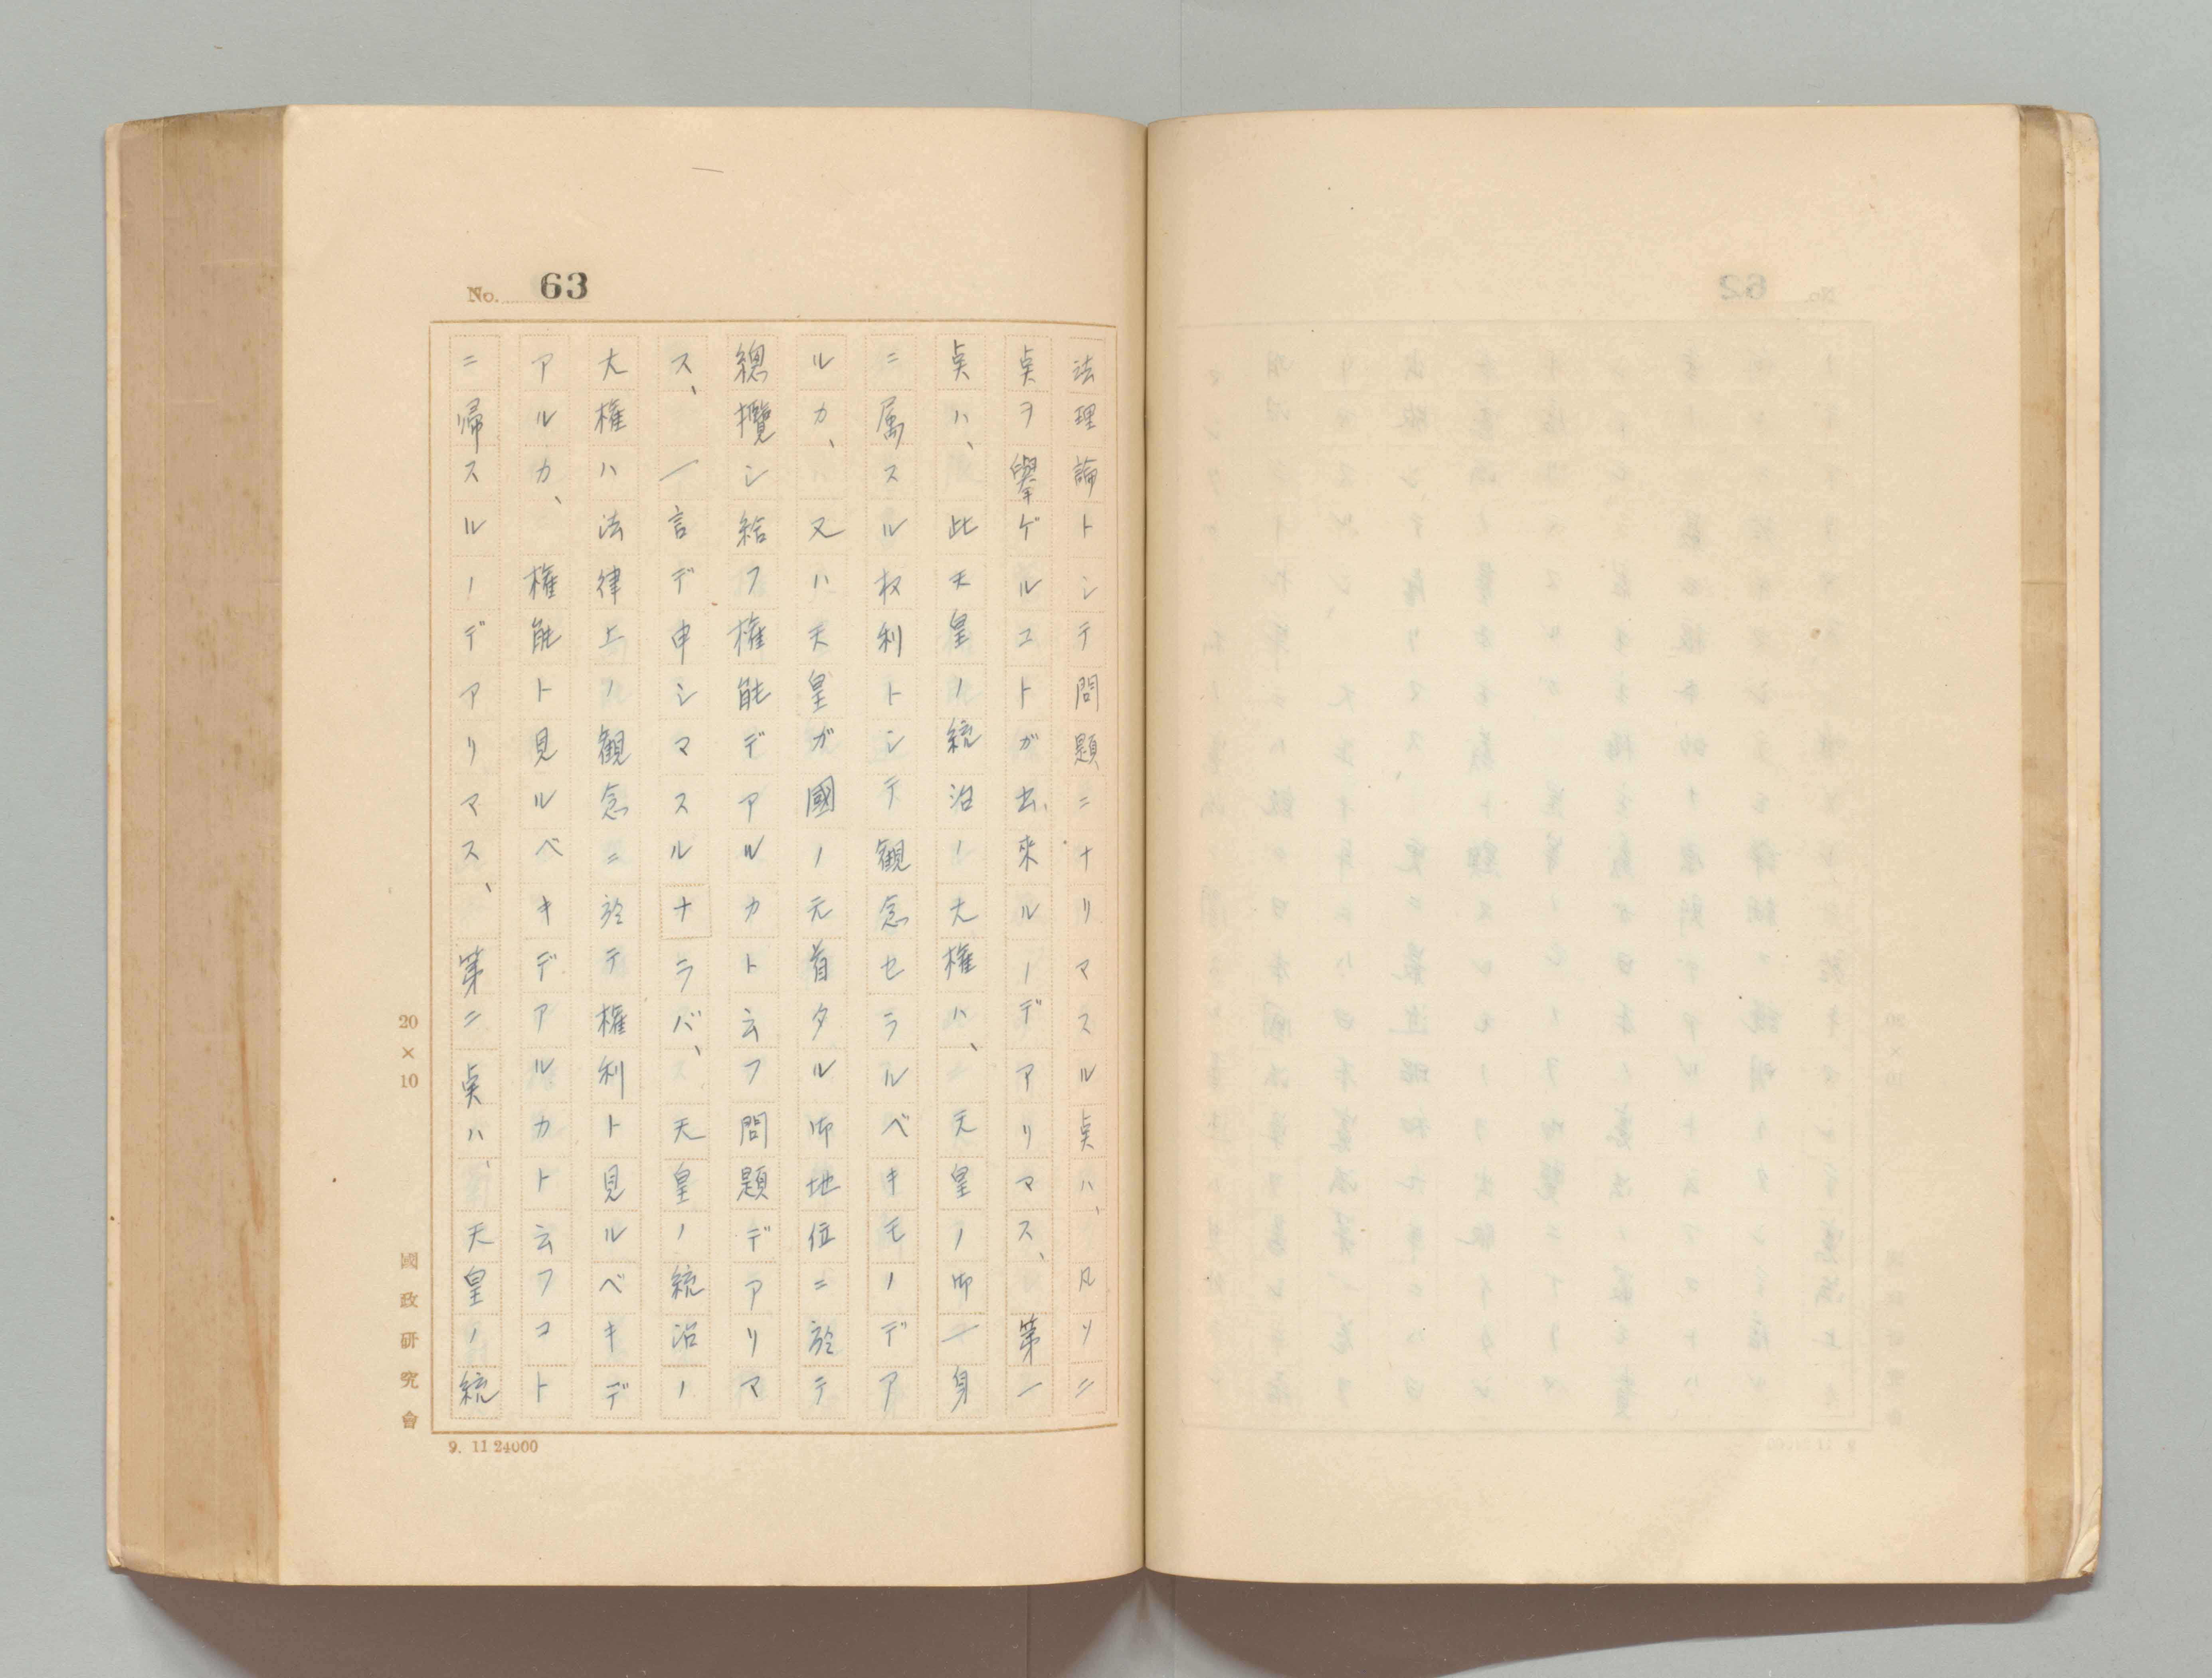 No. 63
法理論トシテ問題ニナリマスル点ハ、凡ソニ
点ヲ擧ゲルコトガ出来ルノデアリマス、第一
点ハ、此天皇ノ統治ノ大権ハ、天皇ノ御一身
ニ属スル权利トシテ観念セラルベキモノデア
ルカ、又ハ天皇ガ國ノ元首タル御地位ニ於テ
總攬シ給フ権能デアルカト云フ問題デアリマ
ス、一言デ申シマスルナラバ、天皇ノ統治ノ
大権ハ法律上ノ観念ニ於テ権利ト見ルベキデ
アルカ、権能ト見ルベキデアルカト云フコト
ニ帰スルノデアリマス、第二点ハ、天皇ノ統
20×10
國政研究會
9. 11 24000